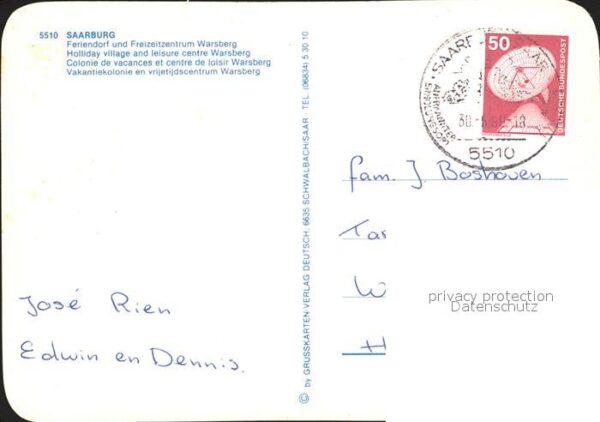 5510 SAARBURG
Feriendorf und Freizeitzentrum Warsberg
Holliday village and leisure centre Warsberg
Colonie de vacances et centre de loisir Warsberg
Vakantiekolonie en vrijetijdscentrum Warsberg
© by GRUSSKARTEN-VERLAG DEUTSCH, 6635 SCHWALBACH/SAAR · TEL. (06834) 5 30 10
50
DEUTSCHE BUNDESPOST
5510
fam. J. Boshoven
privacy protection
Datenschutz
José Rien
Edwin en Dennis.